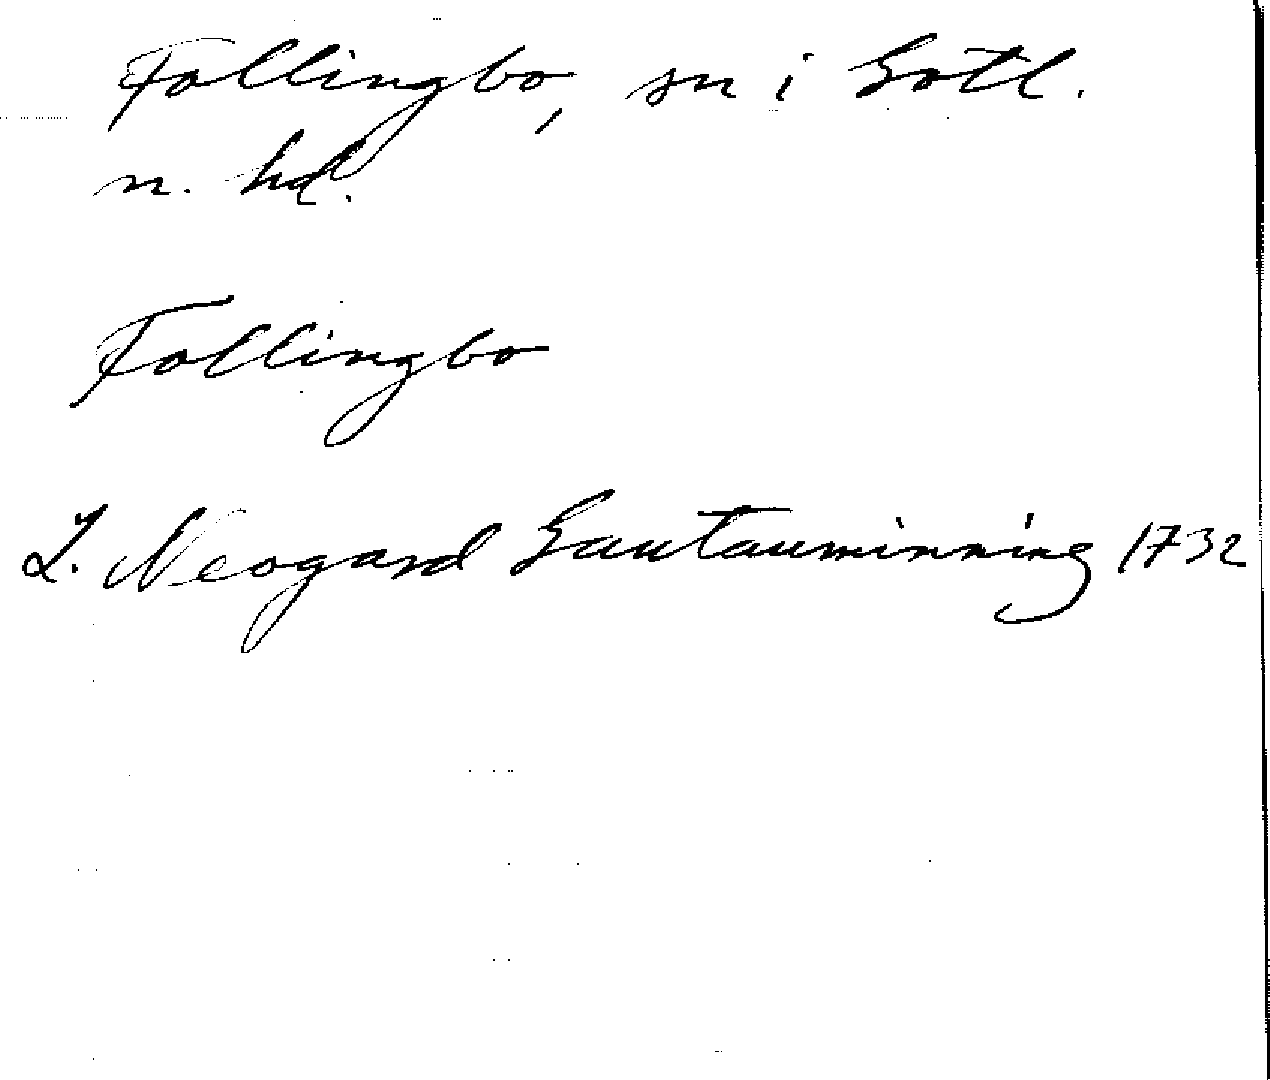 Follingbo, sn i Gotl.
n. hd.
Follingbo
L. Neogard Gautauminning 1732